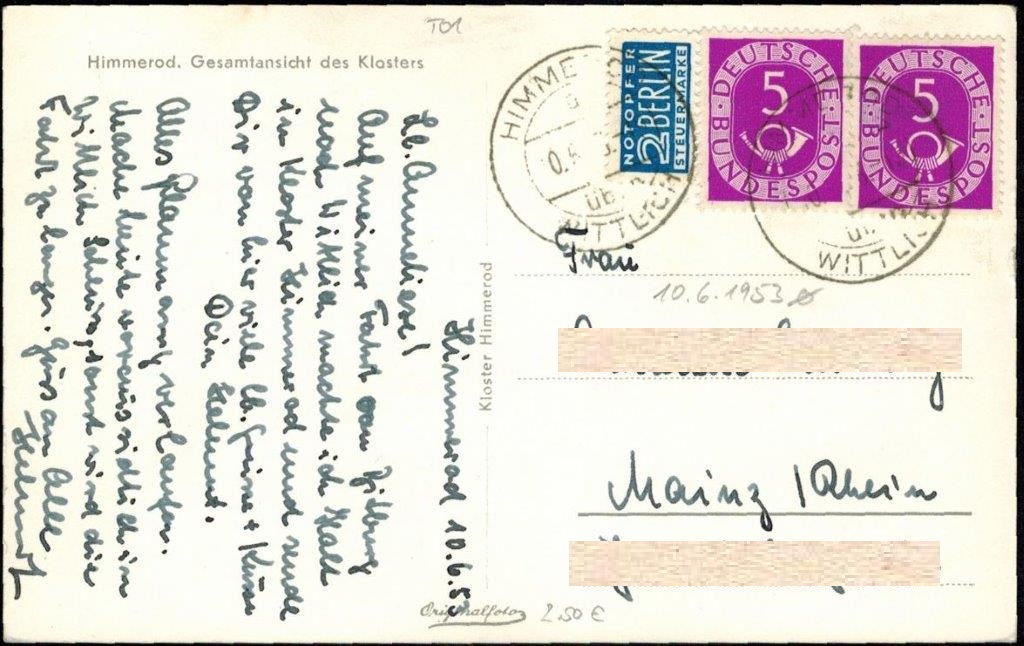 T01
Himmerod. Gesamtansicht des Klosters
Kloster Himmerod
Himmerod 10.6.53
Lb. Anneliese!
Auf meiner Fahrt von Bitburg
nach Wittlich machte ich Halt
im Kloster Himmerod und sende
Dir von hier viele lb. Grüsse + Küsse
Dein Helmut.
Alles planmäßig verlaufen.
Mache heute voraussichtlich in
Wittlich Schluss, sonst wird die
Fahrt zu lange. Gruss an Alle
Helmut
Originalfoto
2,50 €
HIMMEROD
ÜB. WITTLICH
NOTOPFER
2 BERLIN
STEUERMARKE
DEUTSCHE
5
BUNDESPOST
DEUTSCHE
5
BUNDESPOST
WITTLICH
Frau
10.6.1953
Mainz / Rhein